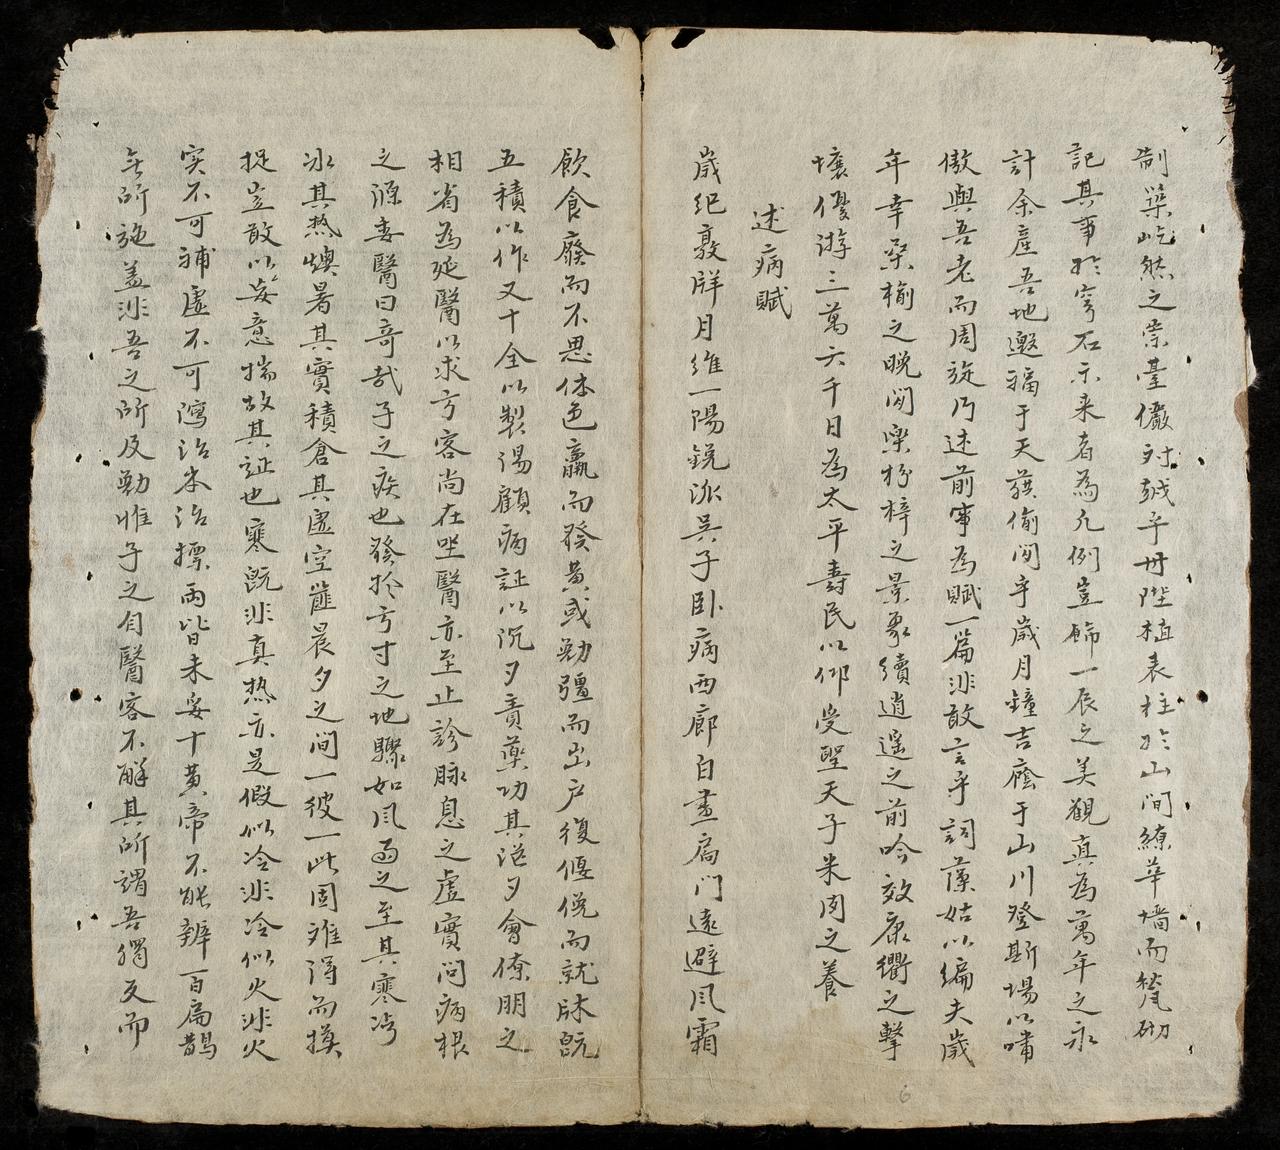 制築屹然之崇臺儼对越乎丹陛植表柱於山間繚華墙而甃砌
記其事於穹石示来者為凡例豈飾一辰之美觀真為萬年之永
計余産吾地邀福于天莫偷閒乎歲月鐘吉蔭于山川登斯場以嘯
傲與吾老而周旋乃述前事為賦一篇非敢言乎詞藻姑以編夫歲
年幸桑榆之晚閒樂枌梓之景象續逍遥之前吟效康衢之擊
壤優游三萬六千日為太平壽民以仰受聖天子米肉之養
述病賦
歲纪敦牂月維一陽銳派吳子卧病西廊白晝扃門遠避风霜
飲食廢而不思体色羸而發黄或勉彊而出户復偃俛而就牀既
五積以作又十全以製湯顧病証以沉夕責藥功其茫夕會僚朋之
相省為延醫以求方客尚在坐醫亦至止診脉息之虚實问病根
之源委醫曰奇哉子之疾也發於方寸之地驟如风雨之至其寒冱
冰其热燠暑其實積倉其虚空簏晨夕之间一彼一此固难得而摸
捉豈敢以妄意揣故其証也寒既非真热亦是假似冷非冷似火非火
实不可補虚不可瀉治本治標兩皆未妥十黄帝不能辨百扁鵲
无所施盖非吾之所及勉惟子之自醫客不解其所謂吾獨反而
6